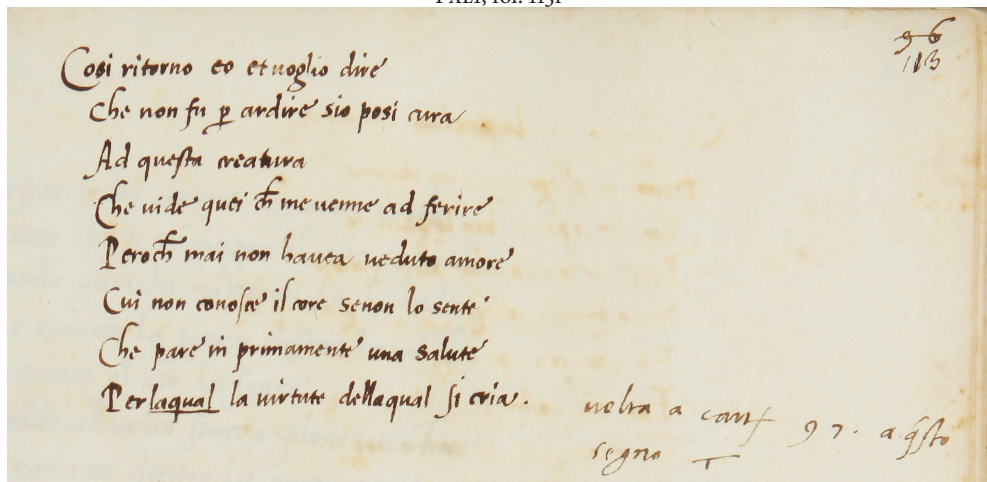 96
113
Cosi ritorno eo et uoglio dire
Che non fu p̱ ardire sio posi cura
Ad questa creatura
Che uide quei ch̄ me uenne ad ferire
Peroch̄ mai non hauea ueduto amore
Cui non conosce il core senon lo sente
Che pare in primamente una salute
Perlaqual la uirtute dellaqual si cria.
uolta a cart 97. a q̄sto
segno T